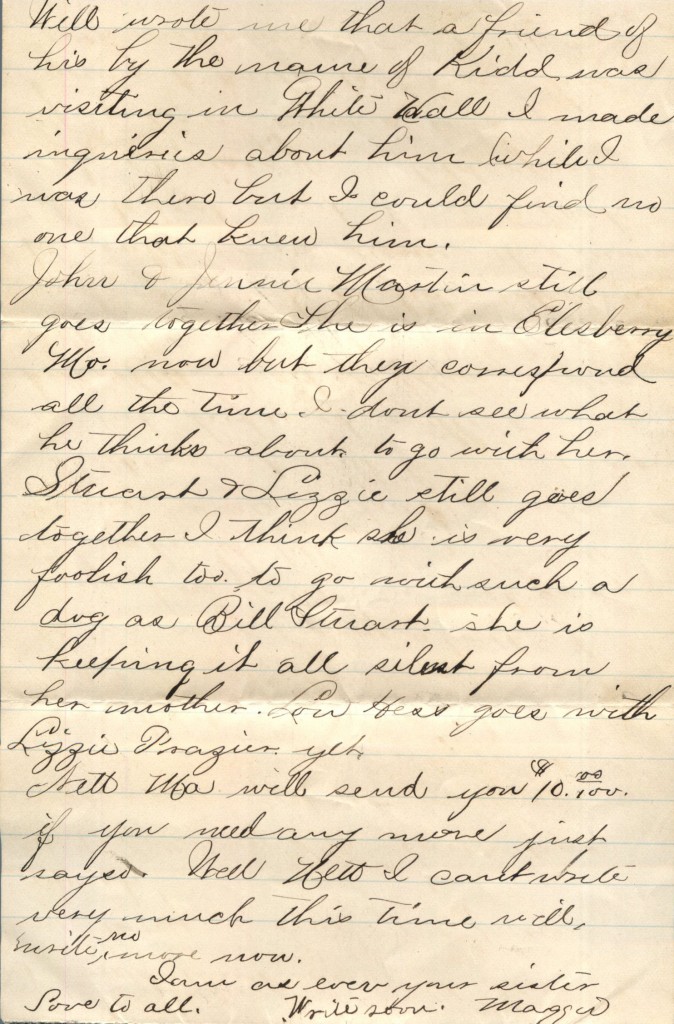 Will wrote me that a friend of
his by the name of Kidd was
visiting in White Hall I made
inquieries about him while I
was there but I could find no
one that knew him.
John & Jennie Martin still
goes together She is in Elesberry
Mo. now but they correspond
all the time. I dont see what
he thinks about to go with her.
Stuart & Lizzie still goes
together I think she is very
foolish too. to go with such a
dog as Bill Stuart. she is
keeping it all silent from
her mother. Lou Hess goes with
Lizzie Frazier yet.
Nett Ma will send you $10.00/100.
if you need any more just
sayso. Well Nett I cant write
very much this time will,
write no more now.
I am as ever your sister
Love to all. Write soon. Maggie